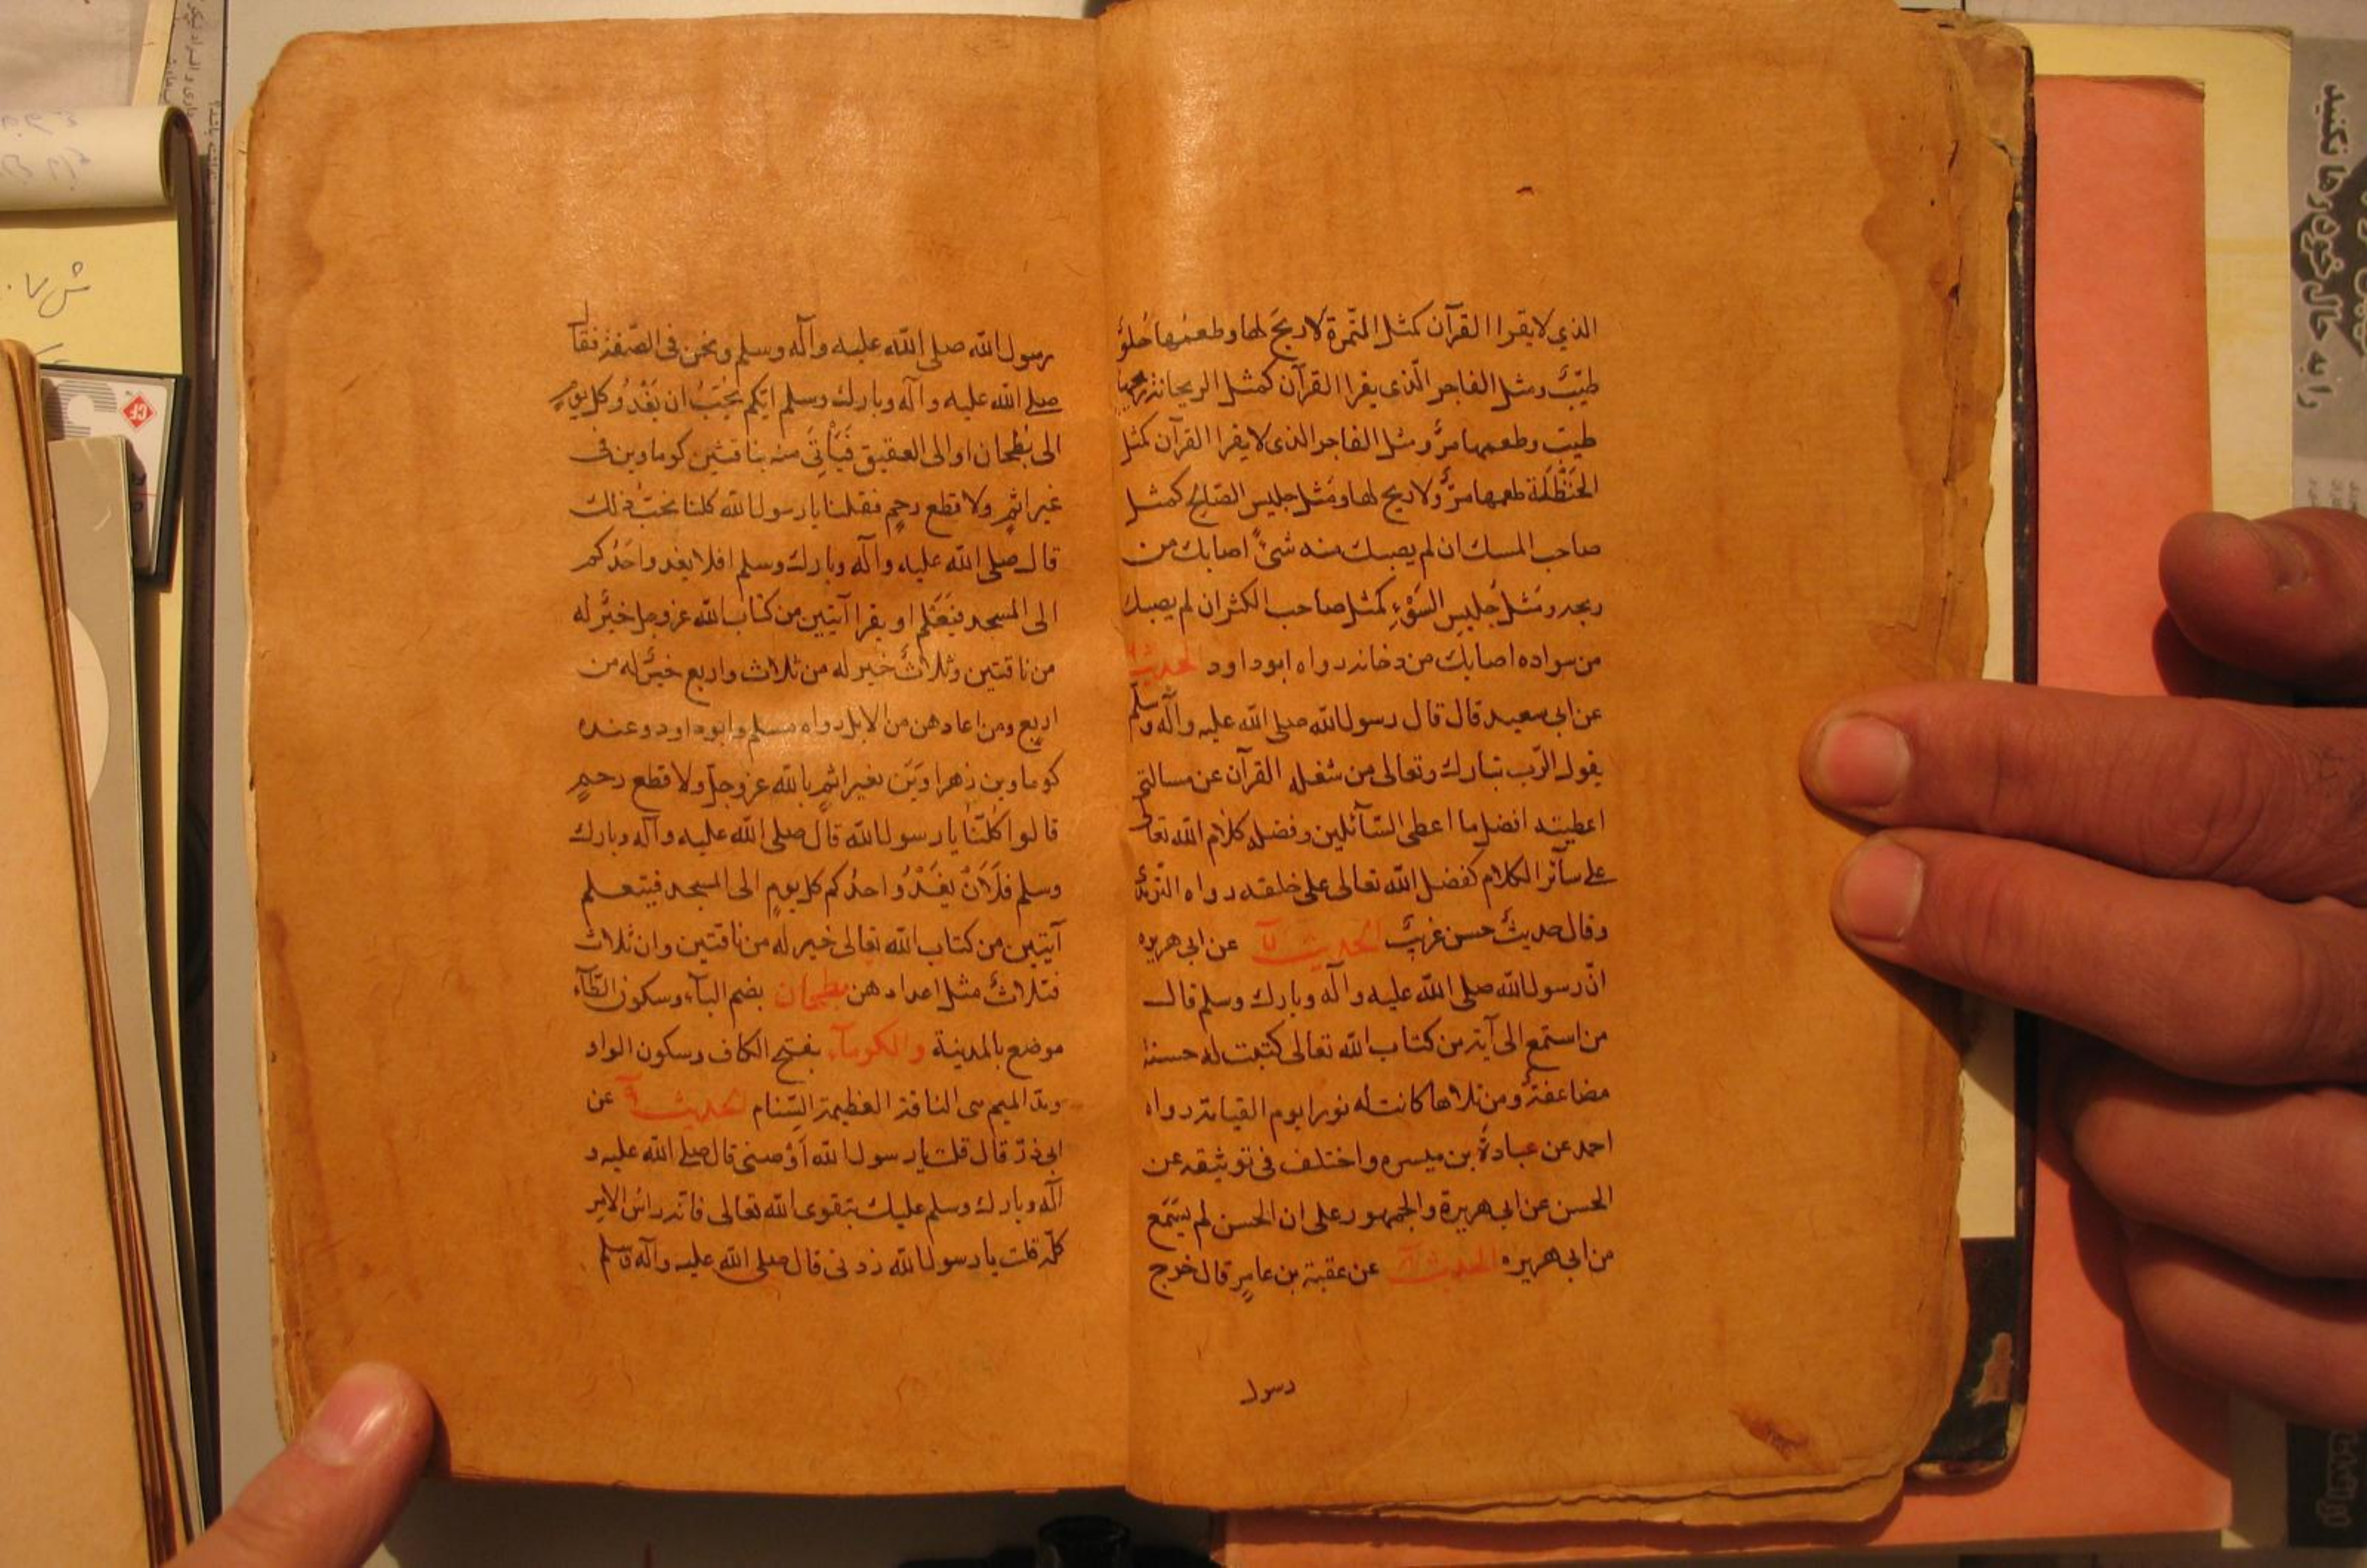 الذي لا يقرا القرآن كمثل التمرة لا ريح لها وطعمها حلو
طيّب ومثل الفاجر الّذى يقرا القرآن كمثل الريحانة ريحها
طيب وطعمها مرّ ومثل الفاجر الذى لا يقرا القرآن كمثل
الحَنْظَلَة طعمها مرّ ولا ريح لها ومَثل جليس الصّالح كمثل
صاحب المسك ان لم يصبك منه شئ اصابك من
ريحه ومَثل جليسِ السَوْءِ كمثل صاحب الكير ان لم يصبك
من سواده اصابك من دخانه رواه ابو داود الحديث
عن ابى سعيد قال قال رسول الله صلى الله عليه وآله وسلّم
يقول الرّب تبارك وتعالى من شغله القرآن عن مسالتى
اعطيته افضل ما اعطى السّآئلين وفضل كلام الله تعالى
على سآئر الكلام كفضل الله تعالى على خلقه رواه الترمذى
وقال حديث حسن غريب الحديث عن ابى هريره
انّ رسول الله صلى الله عليه وآله وبارك وسلم قال
من استمع الى آية من كتاب الله تعالى كتبت له حسنة
مضاعفة ومن تلاها كانت له نورا يوم القيامة رواه
احمد عن عبادة بن ميسره واختلف فى توثيقه عن
الحسن عن ابى هريرة والجمهور على ان الحسن لم يسمع
من ابى هريره الحديث عن عقبة بن عامرٍ قال خرج
رسول
رسول الله صلى الله عليه وآله وسلم ونحن فى الصّفة فقال
صلى الله عليه وآله وبارك وسلم ايّكم يُحِبُّ ان يَغْدُوَ كل يومٍ
الى بُطْحان او الى العقيق فَيَأْتِىَ منه بناقتين كوماوين فى
غير اثمٍ ولا قطع رحمٍ فقلنا يا رسول الله كلنا نحبّ ذلك
قال صلى الله عليه وآله وبارك وسلم افلا يغدو احَدُكم
الى المسجد فيَعَلم او يقرا آيتين من كتاب الله عز وجل خيرٌ له
من ناقتين وثلاثٌ خير له من ثلاث واربع خيرٌ له من
اربع ومن اعادهن من الابل رواه مسلم وابو داود وعنده
كوماوين زهراوَيَن بغير اثمٍ بالله عز وجلّ ولا قطع رحمٍ
قالوا كُلّنَا يا رسول الله قال صلى الله عليه وآله وبارك
وسلم فَلَاَنْ يَغْدُوَ احدُكم كل يومٍ الى المسجد فيتعلم
آيتين من كتاب الله تعالى خير له من ناقتين وان ثلاث
فثلاثٌ مثل اعدادهن بطحان بضم البآء وسكون الطّآء
موضع بالمدينة والكومآء بفتح الكاف وسكون الواو
وبمدّ الميم هى الناقة العظيمة السّنام الحديث عن
ابى ذرّ قال قلت يا رسول الله اَوْصنى قال صلى الله عليه و
آله وبارك وسلم عليك بتقوى الله تعالى فانّه راس الامر
كلّه قلت يا رسول الله زدنى قال صلى الله عليه وآله وسلم